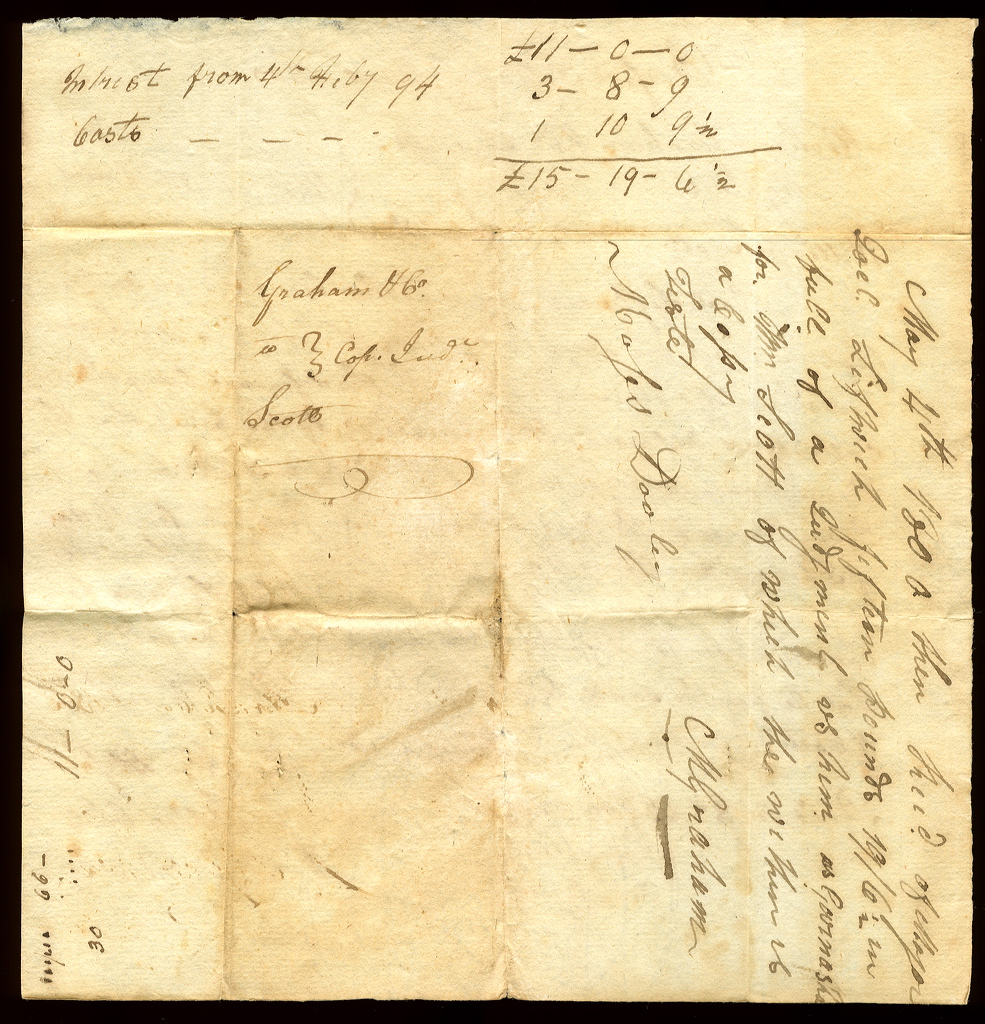 £11 — 0 — 0
Intrest from 4th Feby 94 3 — 8 — 9
Costs — — — 1 10 9 ½
£15 — 19 — 6 ½
Graham & Co.
vs } Cop. Judt.
Scott
May 4th 1800 then Recd of Major
Joel Leftwich fifteen pounds 19/6 ½ in
full of a Judgment vs him as
for Wm Scott of which the within is
a Copy
Teste
Moses Dooley
M Graham
11 — 0 — 0
66 —
30